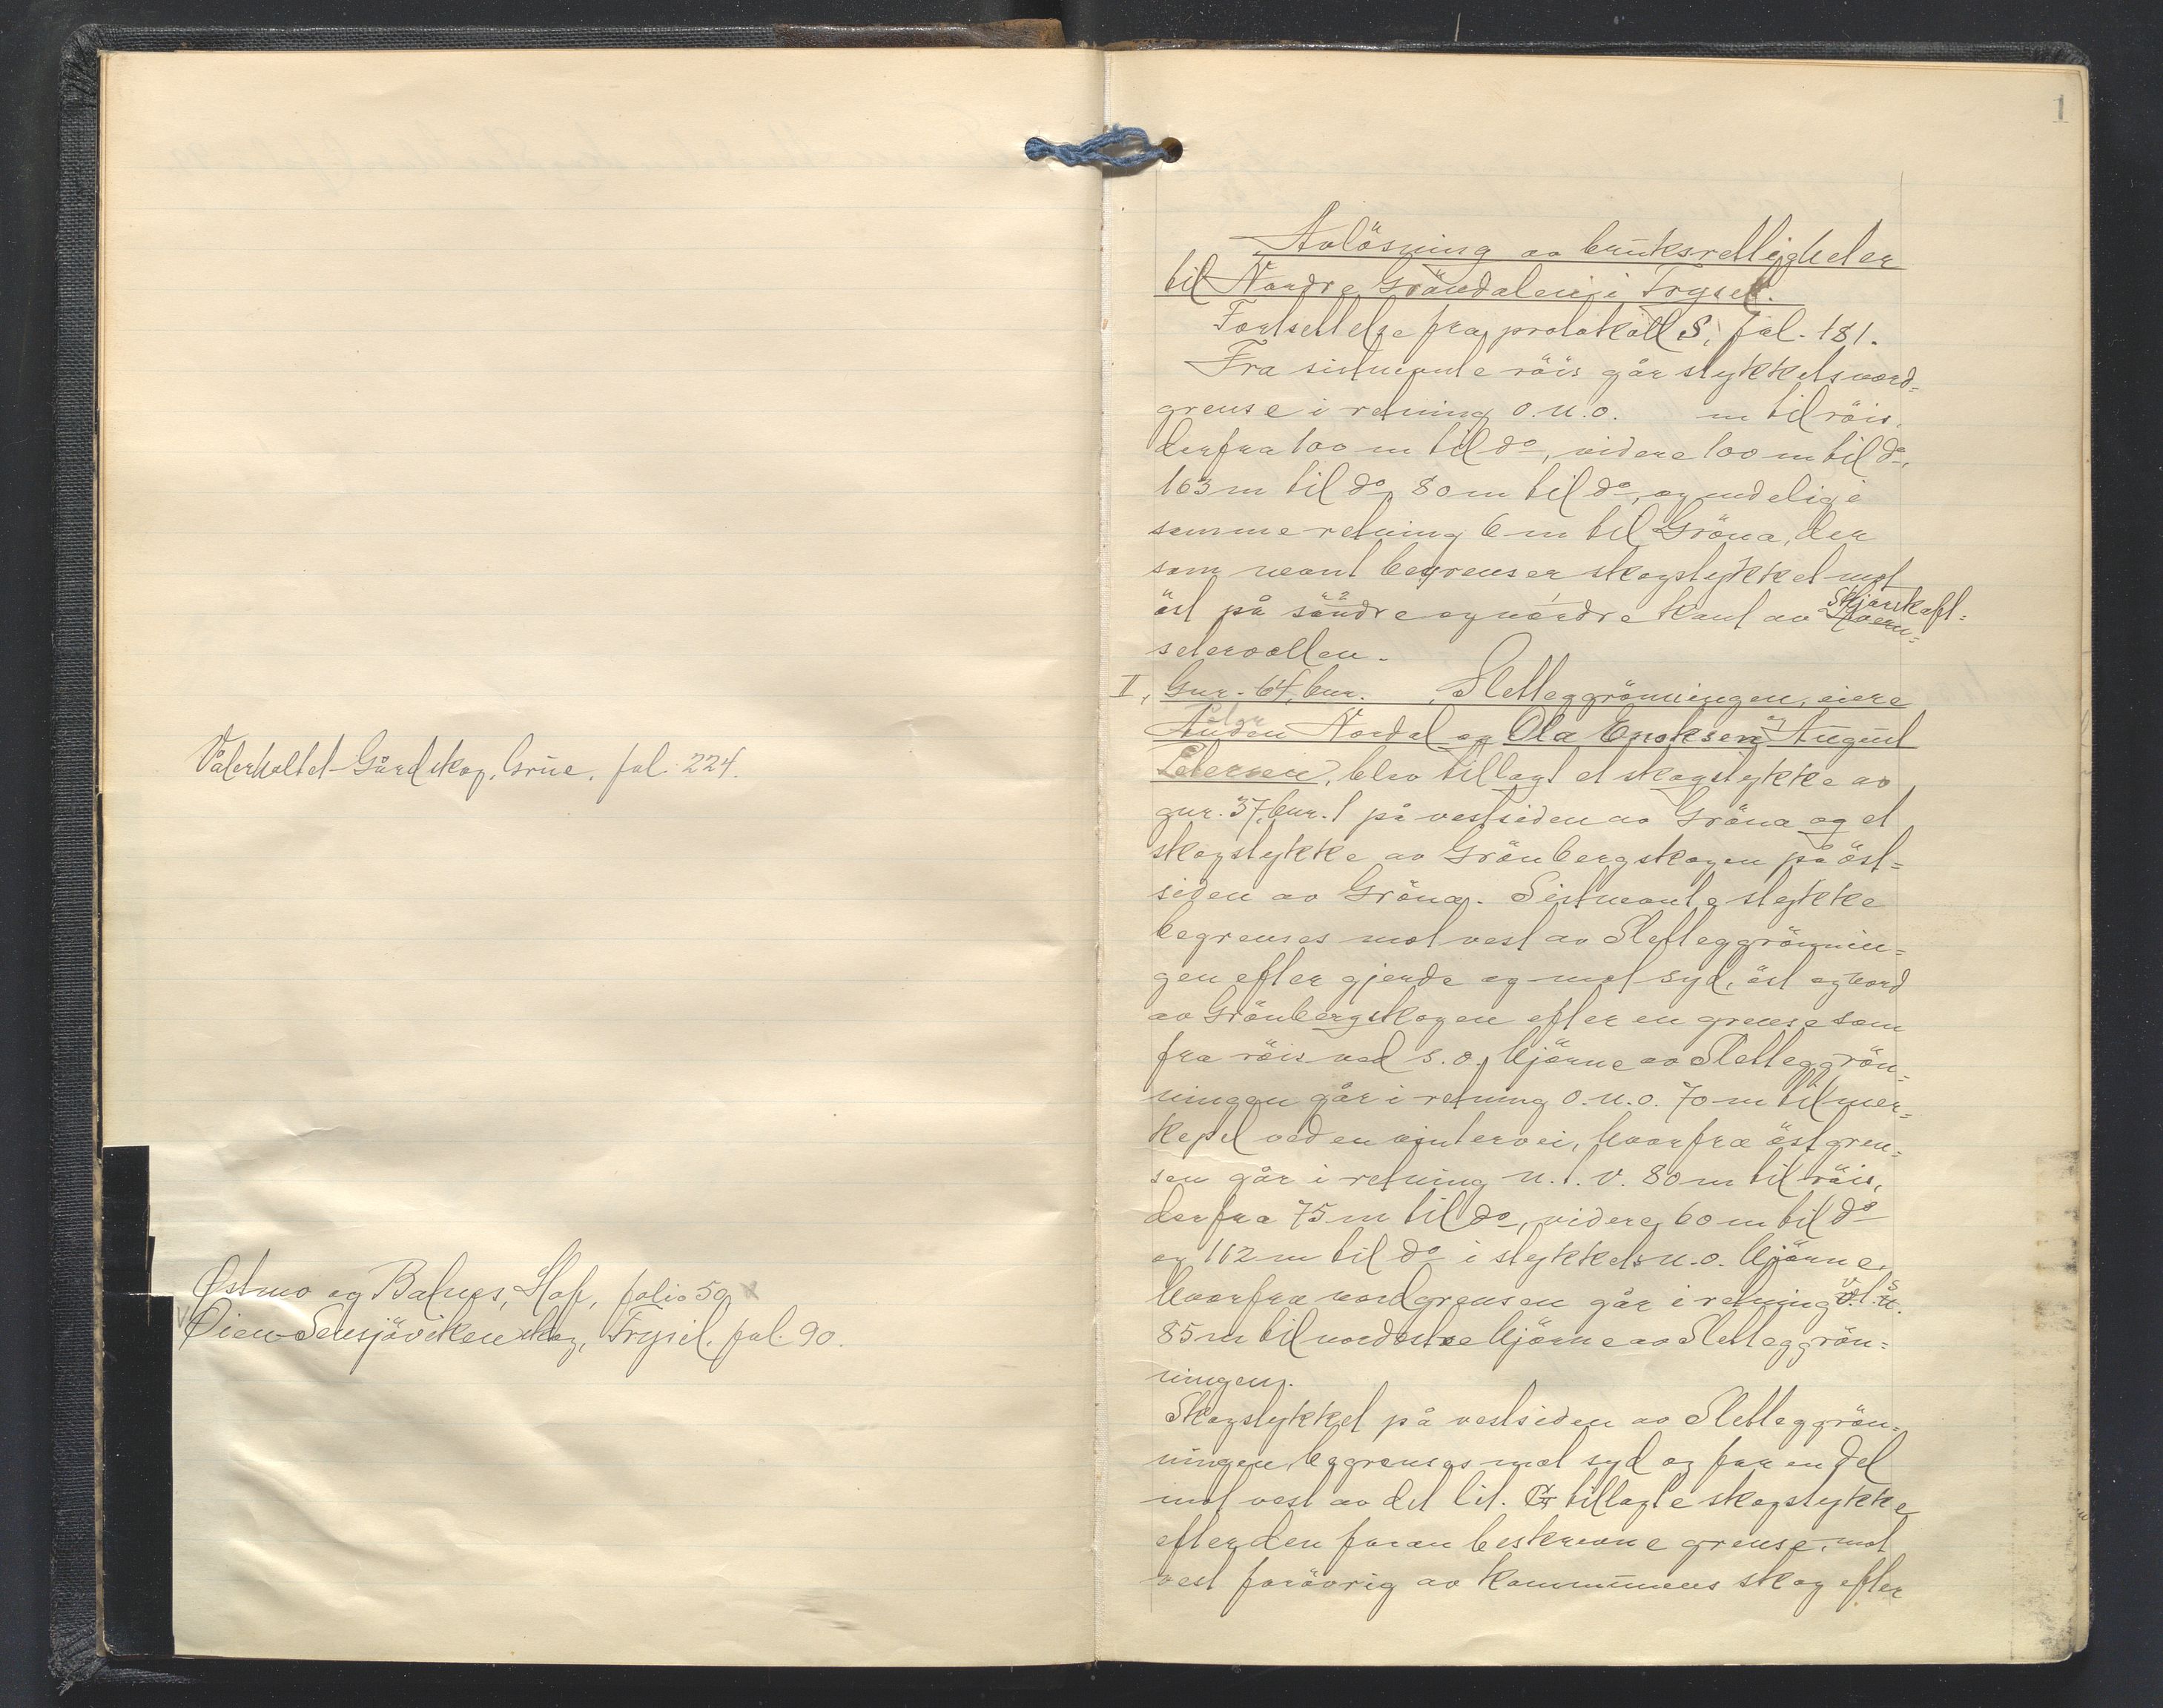 Vålerholtet-Gårdskog, Grue, fol. 224.
Østmo og Balnes, Hof, folio 50
Øien-Sensjöviken skog, Trysil, fol. 90.
1
Avlösning av bruksrettigheter
til Nordre Gröndalen i Trysil.
Fortsettelse fra protokoll S, fol. 181.
Fra sistnevnte röis går stykkets nord-
grense i retning o.n.o. m til röis,
derfra 100 m til do, videre 100 m til do,
163 m til do, 80 m til do, og endelig i
samme retning 6 m til Gröna, der
som nevnt begrenser skogstykket mot
öst på söndre og nordre kant av Skjærskaft-
setervollen.
II, Gnr. 64, bnr. , Sletteggrönningen, eiere
Peder Nordal og Ola Enoksen og August
Petersen, blev tillagt et skogstykke av
gnr. 37, bnr. 1 på vestsiden av Gröna og et
skogstykke av Grönbergskogen på öst-
siden av Gröna. Sistnevnte stykke
begrenses mot vest av Sletteggrönnin-
gen efter gjerde og mot syd, öst og nord
av Grönbergskogen efter en grense som
fra röis ved s.o. hjörne av Sletteggrön-
ningen går i retning o.n.o. 70 m til mer-
kepel ved en vintervei, hvorfra östgren-
sen går i retning n.t.v. 80 m til röis,
derfra 75 m til do, videre 60 m til do
og 112 m til do i stykkets n.o. hjörne,
hvorfra nordgrensen går i retning v.t.s.
85 m til nordöstre hjörne av Sletteggrön-
ningen.
Skogstykket på vestsiden av Sletteggrön-
ningen begrenses mot syd og for en del
mot vest av det lit. tillagte skogstykke
efter den foran beskrevne grense, mot
vest forövrig av kommunens skog efter